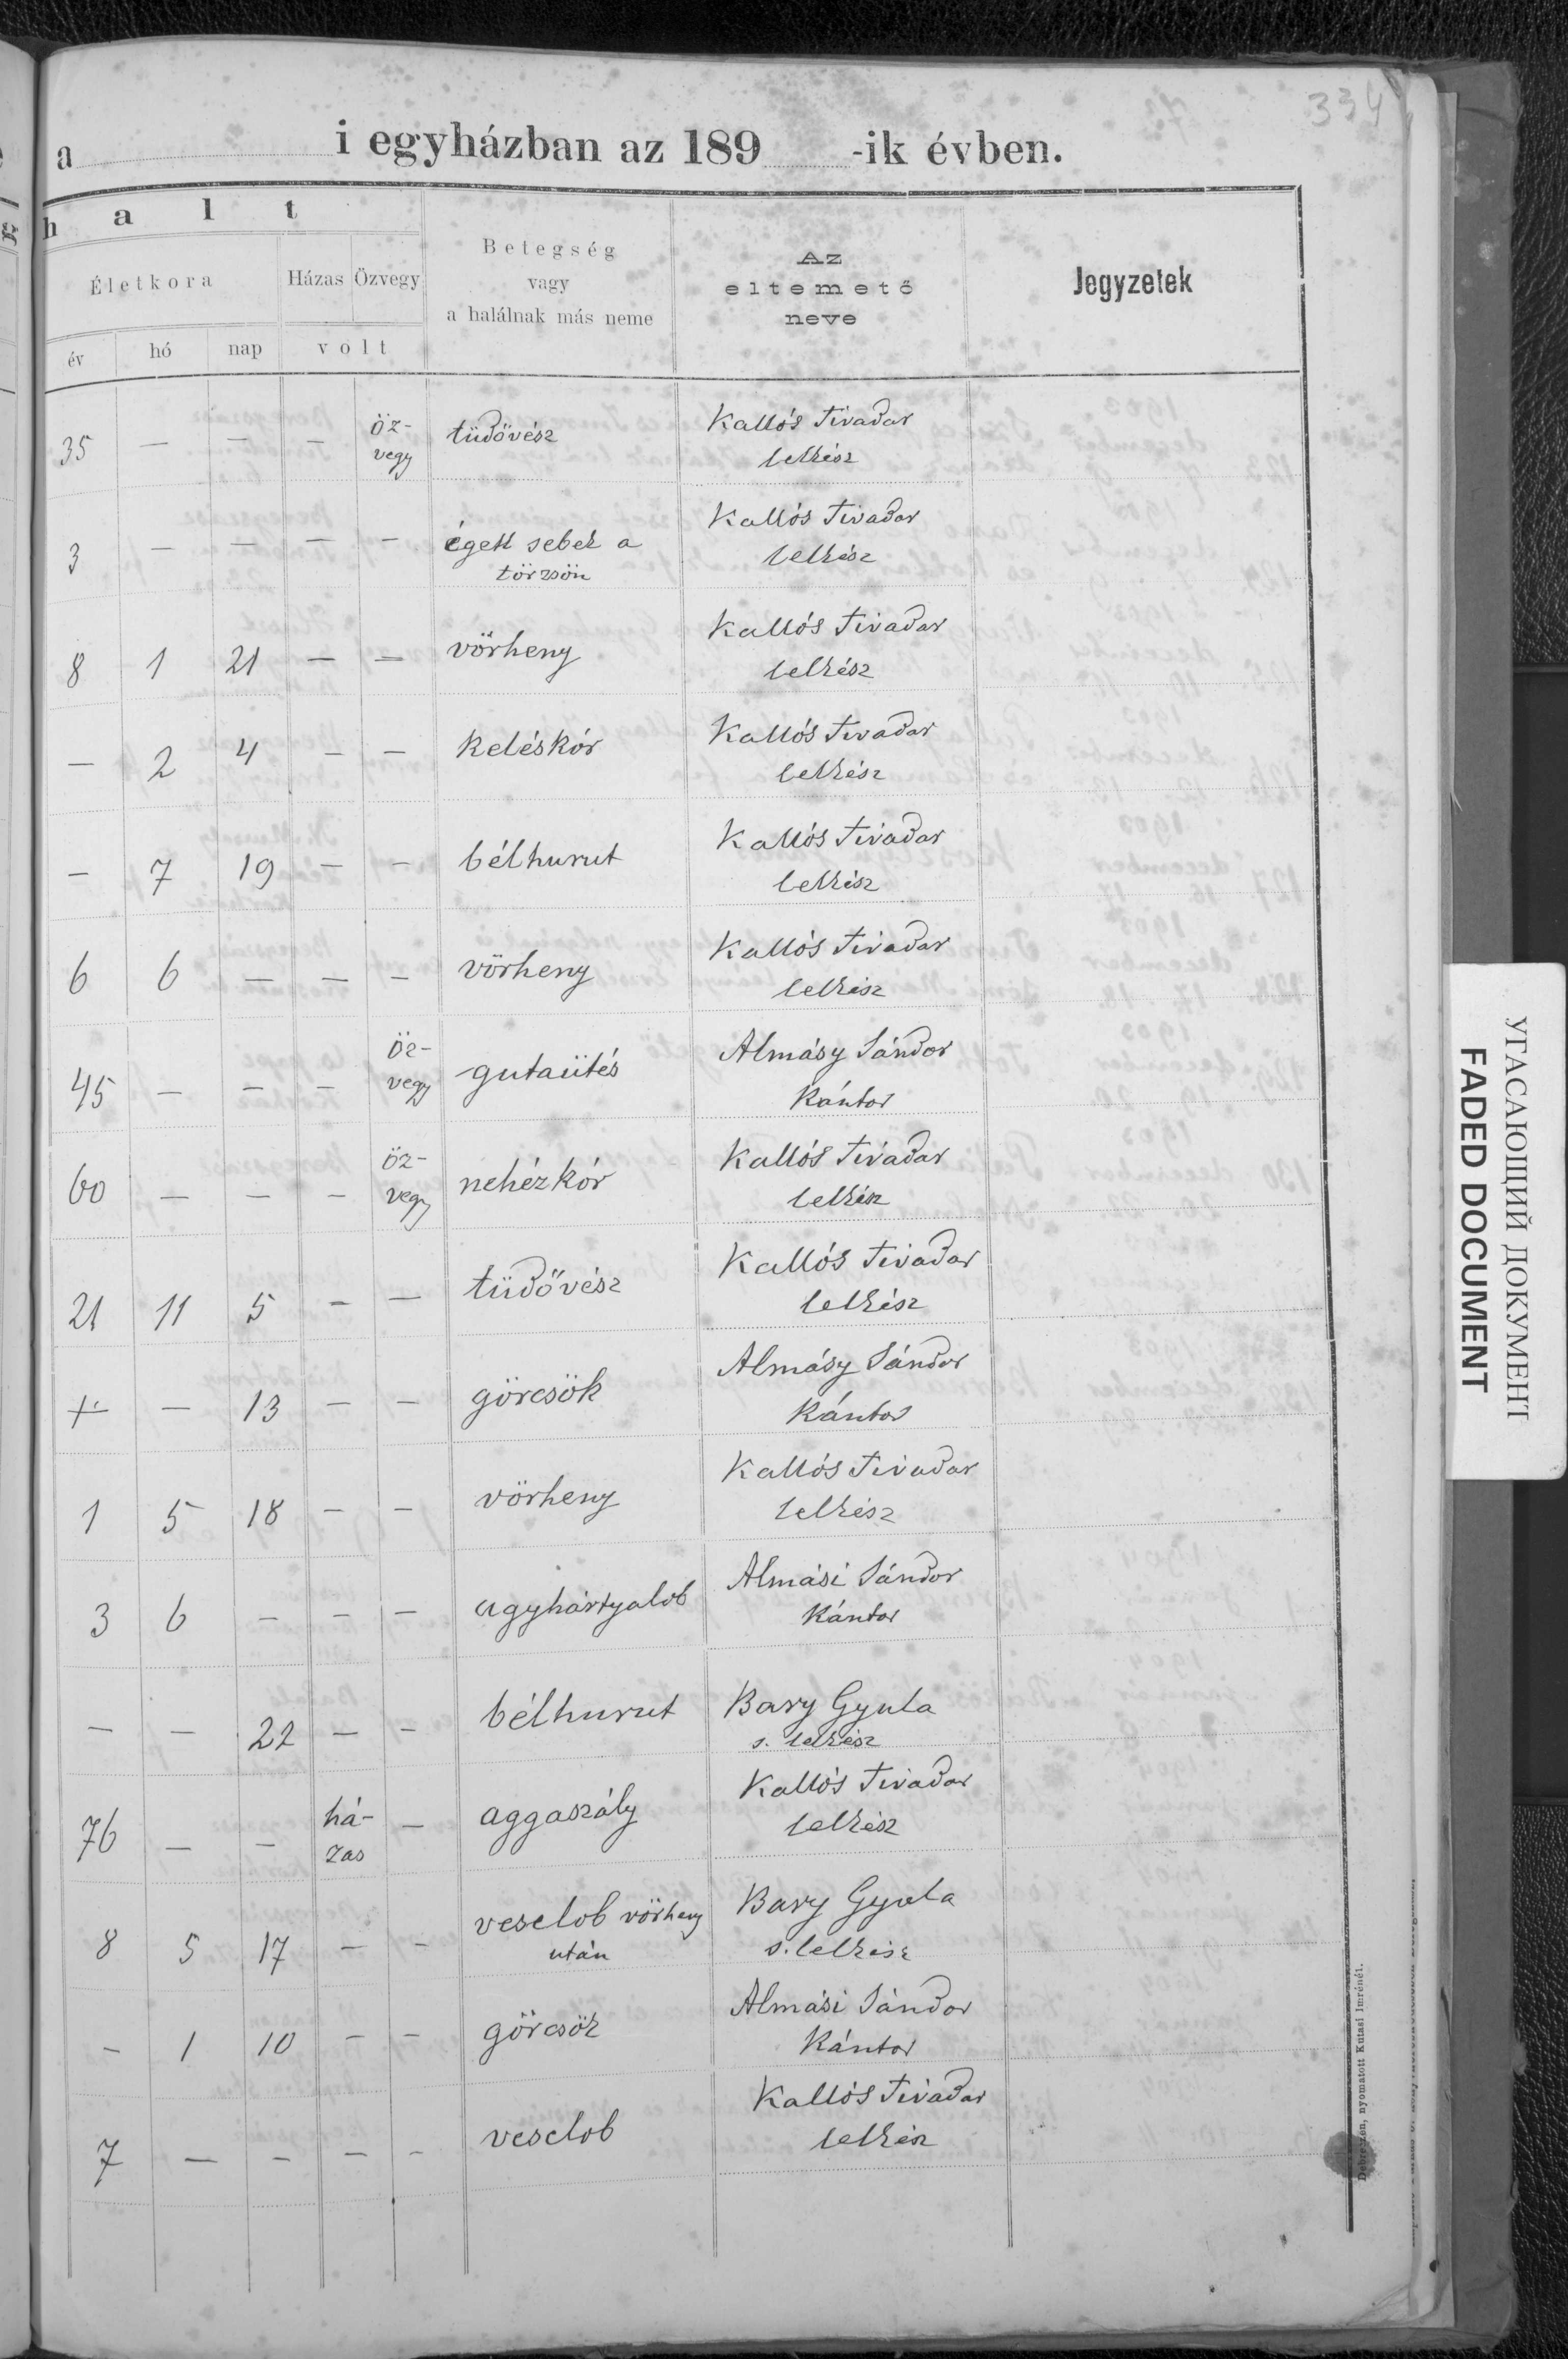 334
a i egyházban az 189 -ik évben.
h a l t
Életkora Házas Özvegy
Betegség
vagy
a halálnak más neme
Az
eltemető
neve
Jegyzetek
év hó nap volt
35 — — — öz- tüdővész Kallós Tivadar
vegy lelkész
3 — — — — égett sebek a Kallós Tivadar
törzsön lelkész
8 1 21 — — vörheny Kallós Tivadar
lelkész
— 2 4 — — keléskór Kallós Tivadar
lelkész
— 7 19 — — bélhurut Kallós Tivadar
lelkész
6 6 — — — vörheny Kallós Tivadar
lelkész
45 — — — öz- gutaütés Almásy Sándor
vegy Kántor
60 — — — öz- nehézkór Kallós Tivadar
vegy lelkész
21 11 5 — — tüdővész Kallós Tivadar
lelkész
— 13 — — görcsök Almásy Sándor
Kántor
1 5 18 — — vörheny Kallós Tivadar
lelkész
3 6 — — — agyhártyalob Almási Sándor
Kántor
— — 22 — — bélhurut Bary Gyula
s. lelkész
76 — — há- — aggaszály Kallós Tivadar
zas lelkész
8 5 17 — — veselob vörheny Bary Gyula
után s. lelkész
— 1 10 — — görcsök Almási Sándor
Kántor
7 — — — — veselob Kallós Tivadar
lelkész
Debreczen, nyomatott Kutasi Imrénél.
УГАСАЮЩИЙ ДОКУМЕНТ
FADED DOCUMENT